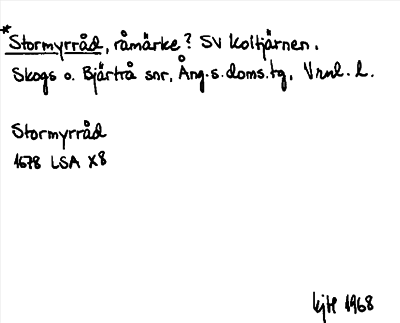 *Stormyrråd, råmärke? SV Koltjärnen.
Skogs o. Bjärtrå snr, Ång.s.doms.tg, Vrnl. l.
Stormyrråd
1678 LSA X8
kjH 1968